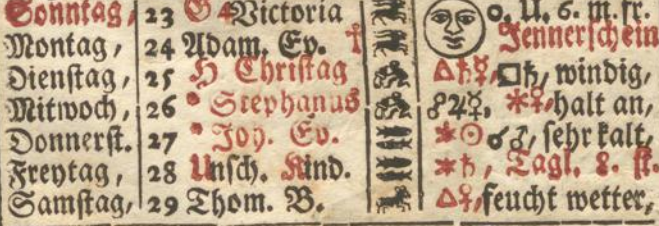 Sonntag, 23 G 4 Victoria 0. U. 6. m. fr.
Montag, 24 Adam. Ev. † Jennerschein
Dienstag, 25 H Christag △♄☿, □♄, windig,
Mitwoch, 26 * Stephanus ☍♃☿, ⚹♀, halt an,
Donnerst. 27 * Joh. Ev. ⚹☉ ☌♂, sehr kalt,
Freytag, 28 Unsch. Kind. ⚹♄, Tagl. 8. st.
Samstag, 29 Thom. B. △♀, feucht wetter,